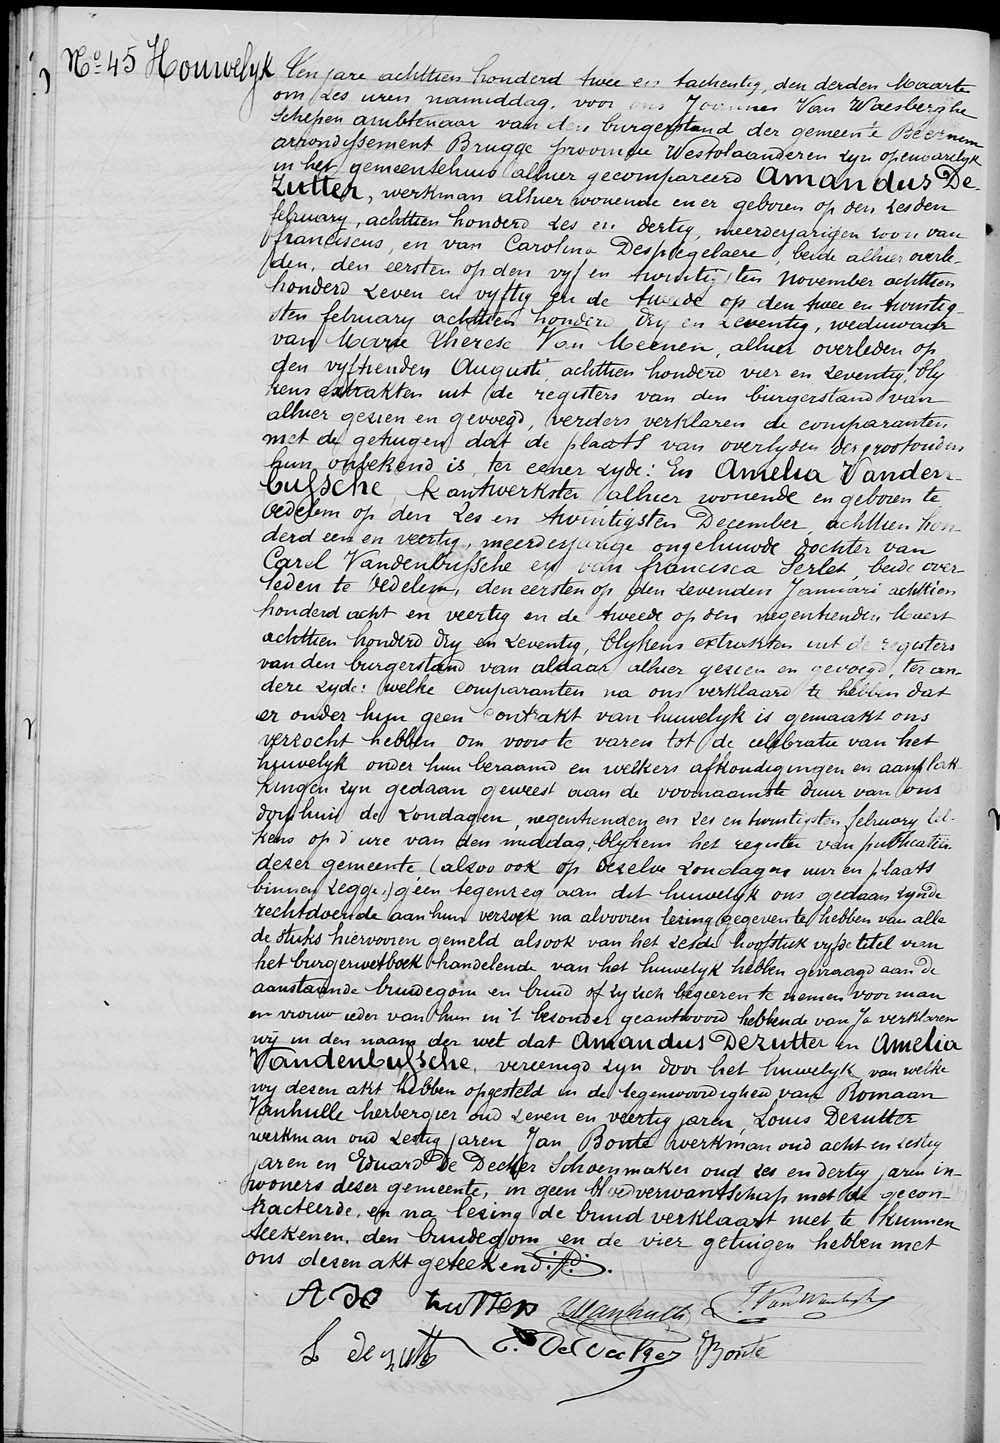 No. 45 Houwelyk Ten jare achttien honderd twee en tachentig, den derden Maarte
om zes uren namiddag, voor ons Joannes Van Waesberghe
Schepen ambtenaar van den burgerstand der gemeente Beernem
arrondissement Brugge provincie Westvlaanderen zyn openbarelyk
in het gemeentehuis alhier gecompareerd Amandus De-
Zutter, werkman alhier wonende en er geboren op den zesden
february, achttien honderd zes en dertig, meerderjarigen zoon van
franciscus, en van Carolina Despiegelaere, beide alhier overle-
den, den eersten op den vyf en twintigsten November achttien
honderd zeven en vyftig en de tweede op den twee en twintig-
sten february achttien honderd dry en zeventig, weduwaar
van Marie Therese Van Meenen, alhier overleden op
den vyfthenden Augusti achttien honderd vier en zeventig, bly
kens extrakten uit de registers van den burgerstand van
alhier gezien en gevoegd, verders verklaren de comparanten
met de getuigen dat de plaats van overlyden der grootouders
hun onbekend is, ter eener zyde: En Amelia Vanden-
bussche, kantwerkster, alhier wonende en geboren te
Oedelem op den zes en twintigsten December, achttien hon-
derd een en veertig, meerderjarige ongehuwde dochter van
Carel Vandenbussche en van francisca Serlet, beide over-
leden te Oedelem, den eersten op den zevenden Januari achttien
honderd acht en veertig en de tweede op den negenthienden Maert
achttien honderd dry en zeventig, blykens extrakten uit de registers
van den burgerstand van aldaar alhier gezien en gevoegd, ter an-
dere zyde: welke comparanten na ons verklaard te hebben dat
er onder hun geen contrakt van huwelyk is gemaakt ons
verzocht hebben om voorts te varen tot de celebratie van het
huwelyk onder hun beraamd en welkers afkondigingen en aanplak
kingen zyn gedaan geweest aan de voornaamste deur van ons
dorphuis de zondagen, negenthienden en zes en twintigsten february tel-
kens op d'ure van den middag, blykens het register van publicatien
dezer gemeente, (alsoo ook op dezelve zondagen uur en plaats
binnen Zegge,) geen tegenzeg aan dit huwelyk ons gedaan zynde
rechtdoende aan hun verzoek na alvooren lezing gegeven te hebben van alle
de stuks hiervooren gemeld alsook van het zesde hoofstuk vyfde titel van
het burgerwetboek handelende van het huwelyk hebben gevraagd aan de
aanstaande bruidegom en bruid of zy zich begeeren te nemen voor man
en vrouw ieder van hun in 't bezonder geantwoord hebbende van Ja verklaren
wij in den naam der wet dat Amandus Dezutter en Amelia
Vandenbussche, vereenigd zyn door het huwelyk van welke
wy dezen akt hebben opgesteld in de tegenwoordigheid van Romaan
Vanhulle herbergier oud zeven en veertig jaren, Louis Dezutter
werkman oud zestig jaren Jan Bonte werkman oud acht en zestig
jaren en Eduard De Decker Schoenmaker oud zes en dertig jaren in-
woners dezer gemeente, in geen bloedverwantschap met de gecon-
tracteerde, en na lezing de bruid verklaart niet te kunnen
teekenen, den bruidegom en de vier getuigen hebben met
ons dezen akt geteekend.
A De Zutter RVanhulle J. Van Waesberghe
L dezutter E. De Decker Bonte